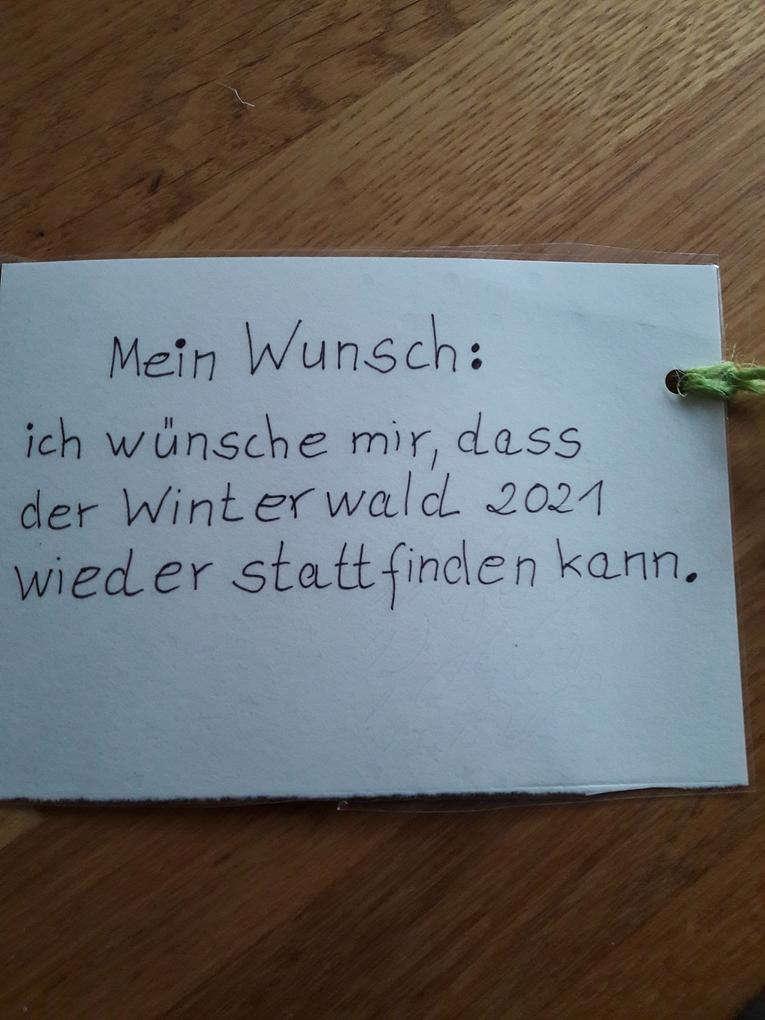 Mein Wunsch:
ich wünsche mir, dass
der Winterwald 2021
wieder stattfinden kann.